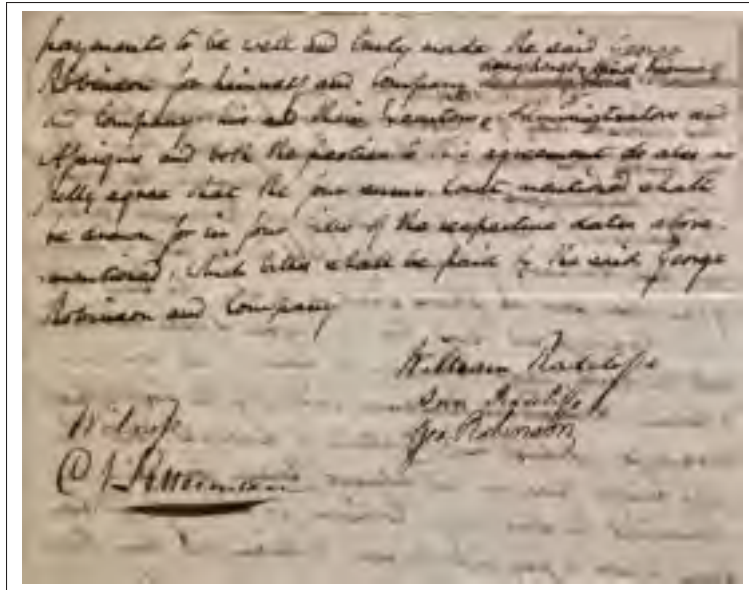 payments to be well and truly made the said George
Robinson for himself and Company
and Company his and their Executors, Administrators and
Assigns and both the parties to this agreement do also
fully agree that the four sums mentioned shall
be drawn for in four Bills of the respective dates above
mentioned, which Bills shall be paid by the said George
Robinson and Company
William Radcliffe
Ann Radcliffe
Geo. Robinson
Witness